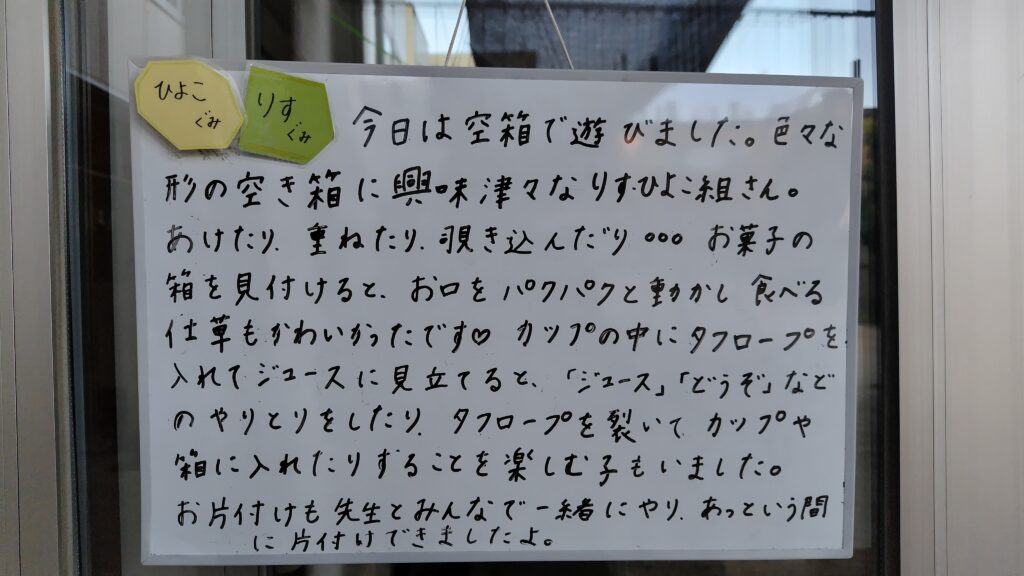 ひよこ
ぐみ
りす
ぐみ
今日は空箱で遊びました。色々な
形の空き箱に興味津々なりす・ひよこ組さん。
あけたり、重ねたり、覗き込んだり。。。お菓子の
箱を見付けると、お口をパクパクと動かし食べる
仕草もかわいかったです♡ カップの中にタフロープを
入れてジュースに見立てると、「ジュース」「どうぞ」など
のやりとりをしたり、タフロープを裂いてカップや
箱に入れたりすることを楽しむ子もいました。
お片付けも先生とみんなで一緒にやり、あっという間
に片付けできましたよ。